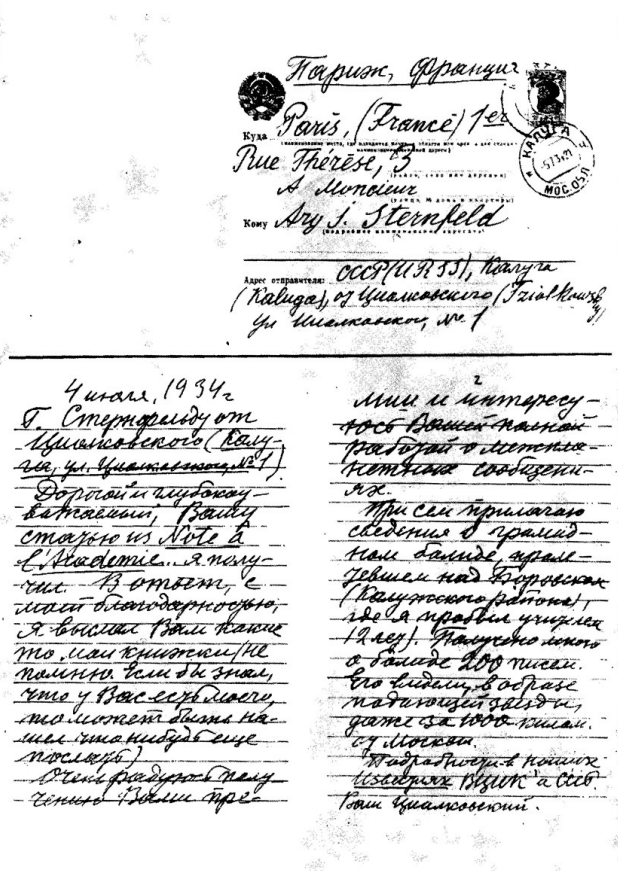 Париж, Франция
Куда Paris, (France) 1er
Rue Thérèse, 3
A Moncieur
Кому Ary J. Sternfeld
(подробное наименование адресата)
Адрес отправителя: СССР (URSS), Калуга
(Kaluga), от Циолковского (Tziolkowsky)
ул Циолковског, № 1
КАЛУГА
МОС. ОБЛ
4 июля, 1934 г
Г. Стернфельду от
Циолковского (Калу-
га, ул. Циолковског, № 1)
Дорогой и глубокоу-
важаемый, Вашу
статью из Note à
l'Academie я полу-
чил. В ответ, с
моей благодарностью,
я выслал Вам какие
то мои книжки (не
помню. Если бы знал,
что у Вас есть моего,
то может быть на-
шел что нибудь еще
послать)
Очень радуюсь полу-
чению Вами пре-
2
мии и интересу-
юсь Вашей полной
работой о межпла-
нетных сообщени-
ях.
При сем прилагаю
сведения о громад-
ном болиде, проле-
тевшем над Боровском
(Калужского района),
где я пробыл учителем
12 лет). Получено много
о болиде 200 писем.
Его видели, в образе
падающей звезды,
даже за 1000 килом.
от Москвы.
Подробности в наших
Известиях ВЦИК'а ССС.
Ваш Циолковский.